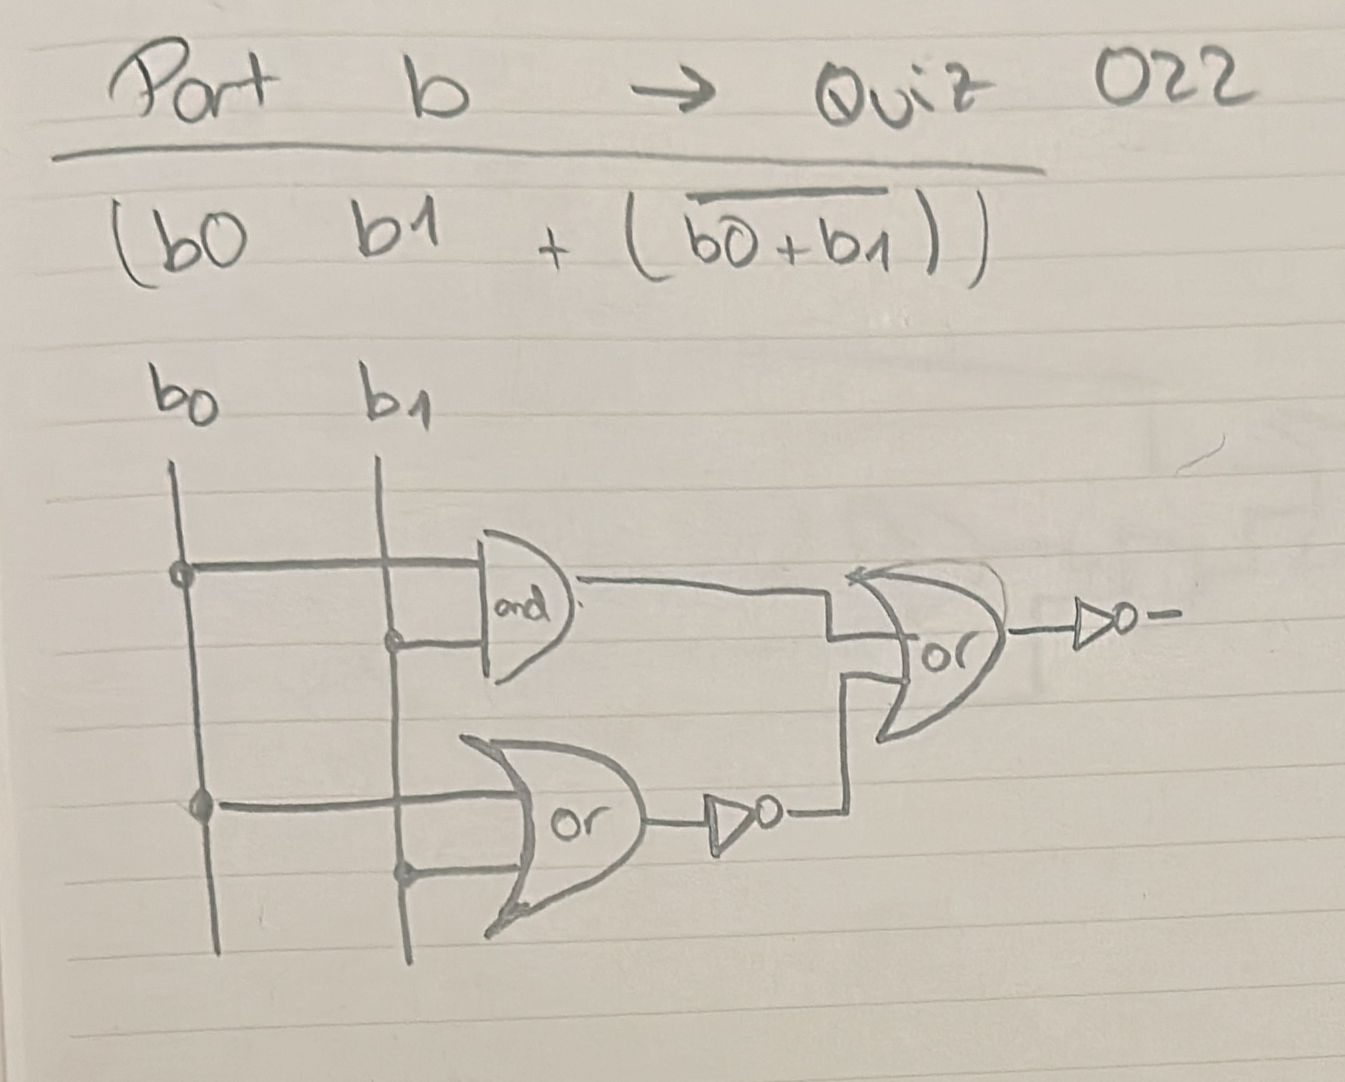 Part b → Quiz 022
(b0 b1 + (b0+b1))
b0 b1
and
or
or